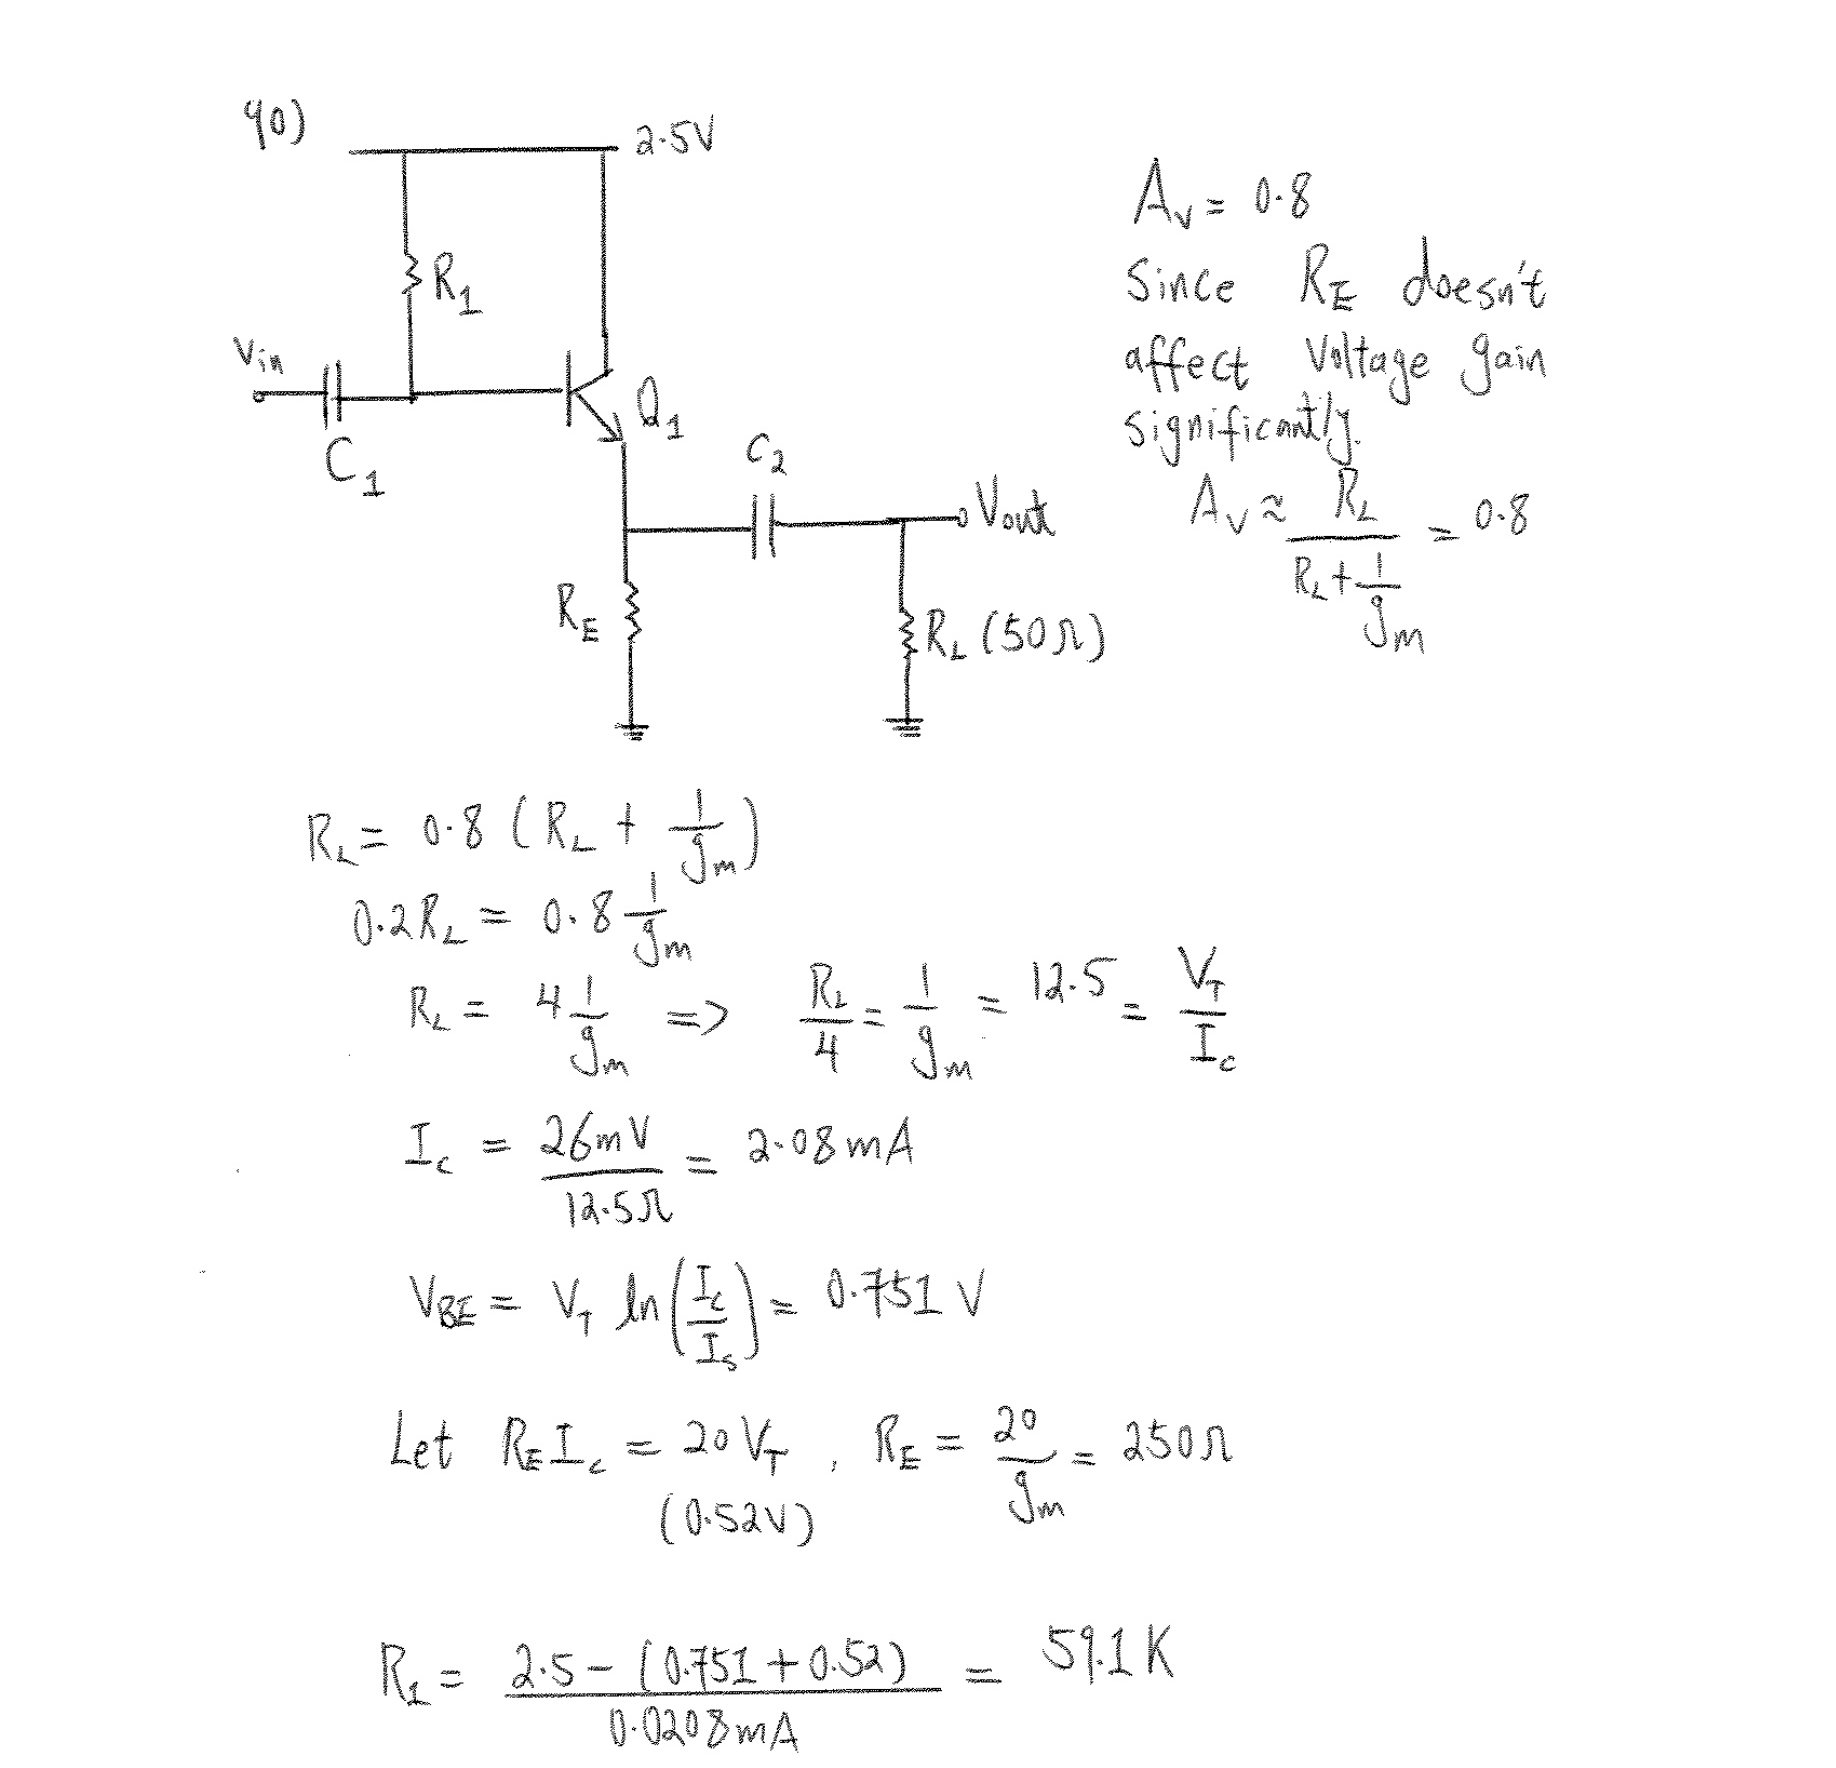 90)
2.5V
R1
Vin
C1
Q1
C2
Vout
RE
RL (50Ω)
Av = 0.8
Since RE doesn't
affect Voltage gain
significantly.
Av ≈ RL / (RL + 1/gm) = 0.8
RL = 0.8 (RL + 1/gm)
0.2RL = 0.8 1/gm
RL = 4 1/gm => RL/4 = 1/gm = 12.5 = VT/Ic
Ic = 26mV / 12.5Ω = 2.08mA
VBE = VT ln(Ic/Is) = 0.751 V
Let REIc = 20VT , RE = 20/gm = 250Ω
(0.52V)
R1 = 2.5 - (0.751 + 0.52) / 0.0208mA = 59.1K